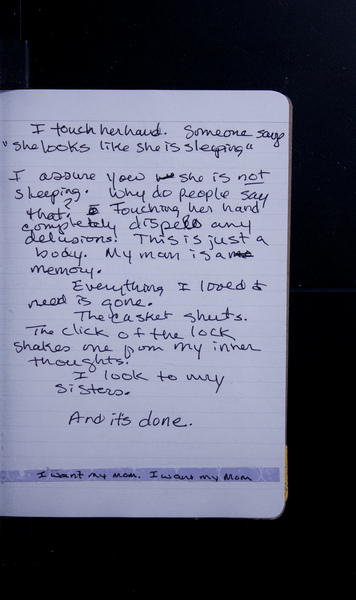 I touch her hand. Someone says
"she looks like she is sleeping"
I assure you she is not
sleeping. Why do people say
that? Touching her hand
completely dispels any
delusions. This is just a
body. My mom is a
memory.
Everything I loved &
need is gone.
The casket shuts.
The click of the lock
shakes me from my inner
thoughts.
I look to my
sisters.
And it's done.
I want my mom. I want my Mom